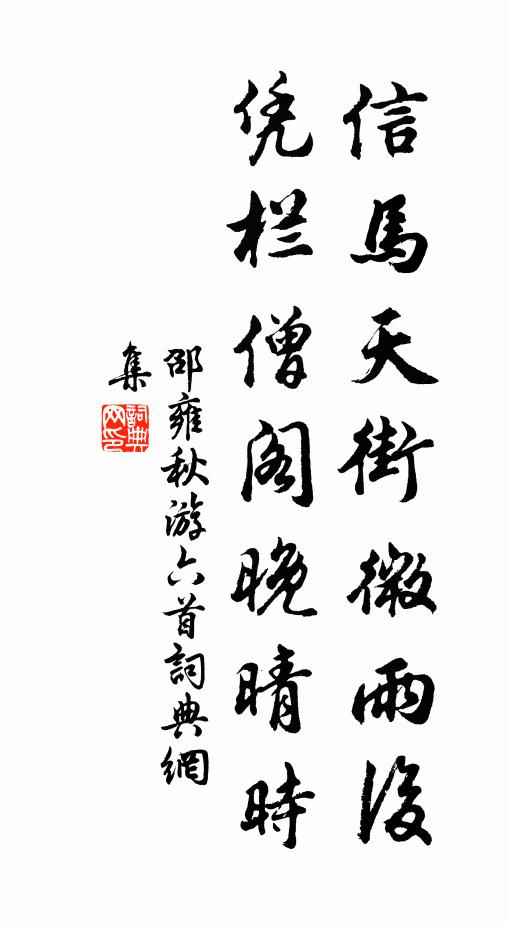 信馬天街微雨後
凭栏僧阁晚晴時
邵雍秋游六首詞典網
集
詞典网印